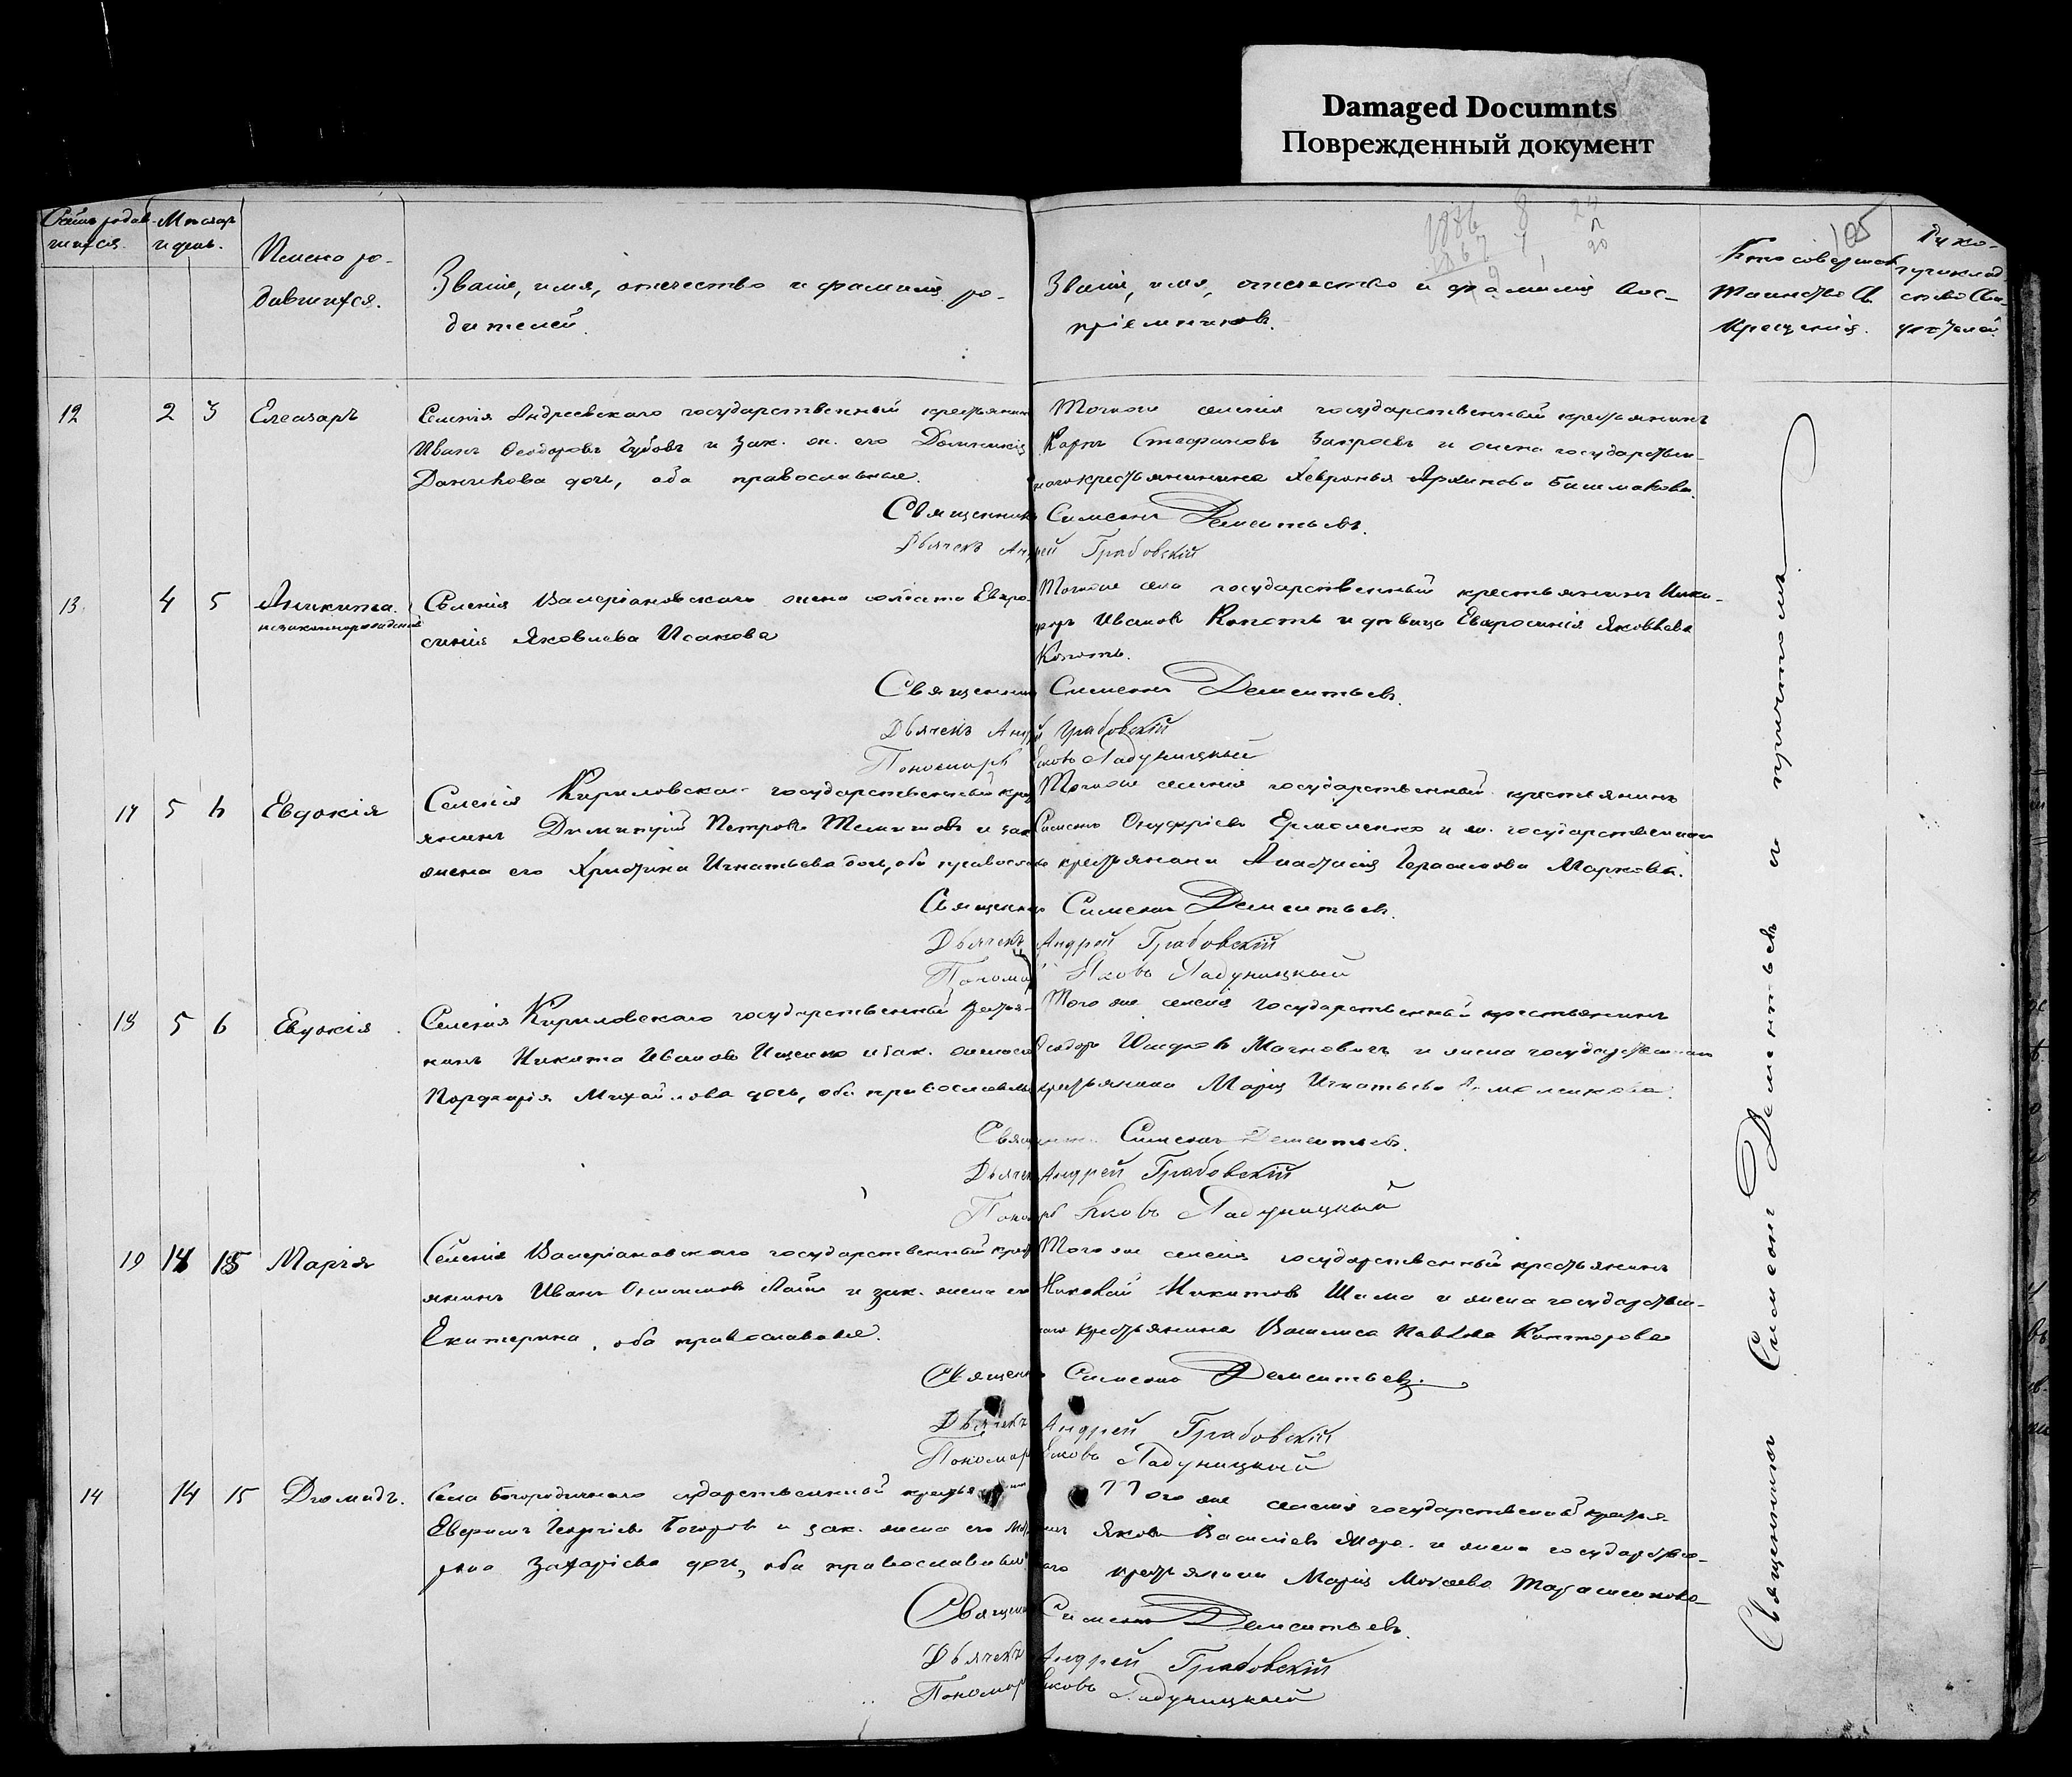 Damaged Documnts
Поврежденный документ
105
Счетъ родив-
шихся.
Мѣсяцъ
и день.
Имена ро-
дившихся.
Званіе, имя, отчество и фамилія ро-
дителей.
Званіе, имя, отчество и фамилія вос-
пріемниковъ.
Кто совершалъ
таинство
крещенія.
Руко-
приклад
ство сви-
дѣтелей
12 2 3 Елеазаръ
Селенія Андреевскаго государственный крестьянинъ
Иванъ Феодоровъ Зубовъ и зак. ж. его Домникія
Данилова дочь, оба православные.
Тогоже селенія государственный крестьянинъ
Карпъ Стефановъ и жена государствен-
наго крестьянина Хевронья Архипова Башмакова.
Священникъ Симеонъ Дементьевъ.
Дьячекъ Андрей Грабовскій
13. 4 5 Аникита.
незаконнорожденный
Селенія Валеріановскаго жена солдата Евфро-
синія Яковлева Исакова
Тогоже села государственный крестьянинъ Ники-
форъ Ивановъ Копоть и дѣвица Евфросинія Яковлева
Копоть.
Священникъ Симеонъ Дементьевъ.
Дьячекъ Андрей Грабовскій
Пономарь Яковъ Ладуницкый
17 5 6 Евдокія
Селенія Кириловскаго государственный крест
янинъ Димитрій Петровъ и зак
жена его Христина Игнатьева дочь, оба православ
Тогоже селенія государственный крестьянинъ
Симеонъ Онуфріевъ Ермоленко и ж. государственнаго
крестьянина Анастасія Герасимова Маркова.
Священникъ Симеонъ Дементьевъ.
Дьячекъ Андрей Грабовскій
Пономарь Яковъ Ладуницкый
18 5 6 Евдокія.
Селенія Кириловскаго государственный крестья-
нинъ Никита Ивановъ Ищенко и зак. жена его
Порфирія Михайлова дочь, оба православные
Того же селенія государственный крестьянинъ
Феодоръ и жена государственнаго
крестьянина Марія Игнатьева
Священникъ Симеонъ Дементьевъ.
Дьячекъ Андрей Грабовскій
Пономарь Яковъ Ладуницкый
19 14 15 Марія
Селенія Валеріановскаго государственный крест
янинъ Иванъ и зак. жена его
Екатерина, оба православные.
Того же селенія государственный крестьянинъ
Николай Никитовъ Шама и жена государствен-
наго крестьянина Василиса Павлова
Священникъ Симеонъ Дементьевъ.
Дьячекъ Андрей Грабовскій
Пономарь Яковъ Ладуницкый
14 14 15 Діомидъ.
Села Богородичнаго государственный крестьянинъ
Георгіевъ и зак. жена его
Захаріева дочь, оба православные
Того же селенія государственный крестья-
нинъ Яковъ Васильевъ и жена государствен-
наго крестьянина Марія Моисеева
Священникъ Симеонъ Дементьевъ.
Дьячекъ Андрей Грабовскій
Пономарь Яковъ Ладуницкый
Священникъ Симеонъ Дементьевъ съ причтомъ